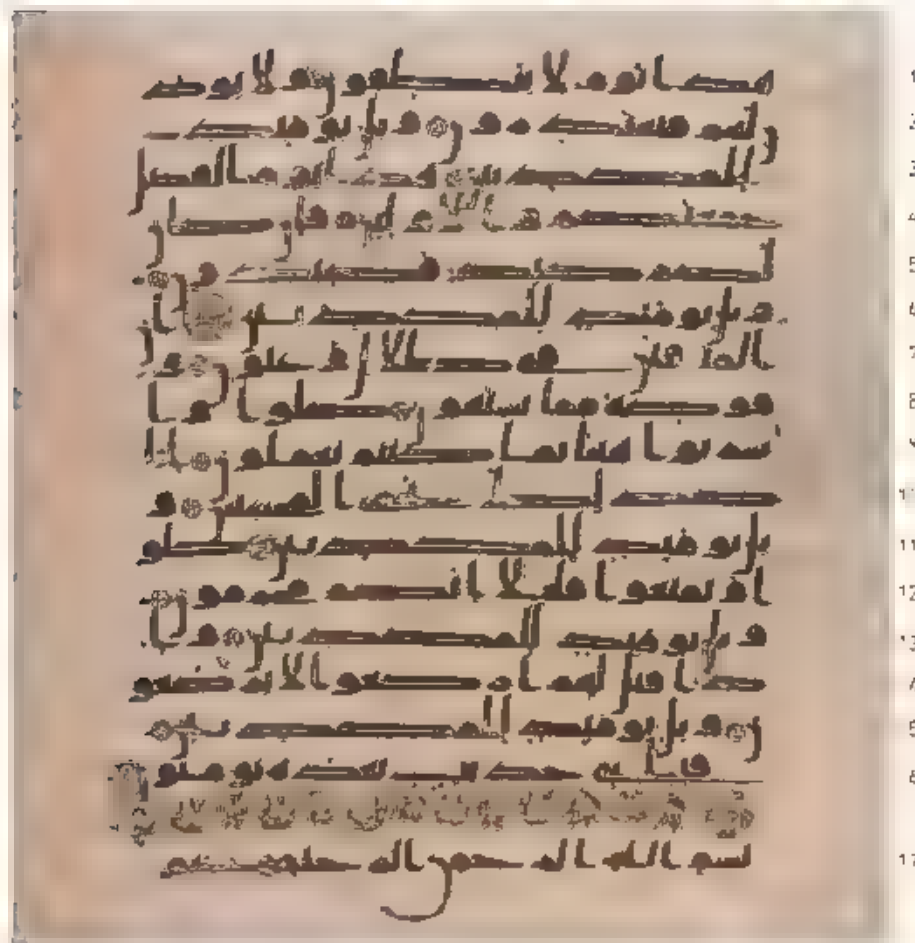 هذا يوم لا ينطقون ولا يوذ
ن لهم فيعتذرون ويل يومئذ
للمكذبين هذا يوم الفصل
جمعنكم والاولين فان كان
لكم كيد فكيدون
ويل يومئذ للمكذبين ان
المتقين في ظلل وعيون و
فوكه مما يشتهون كلوا وا
شربوا هنيا بما كنتم تعملون انا
كذلك نجزي المحسنين و
يل يومئذ للمكذبين كلو
ا وتمتعوا قليلا انكم مجرمون
ويل يومئذ للمكذبين وا
ذا قيل لهم اركعوا لا يركعو
ن ويل يومئذ للمكذبين
فباي حديث بعده يومنون
بسم الله الرحمن الرحيم